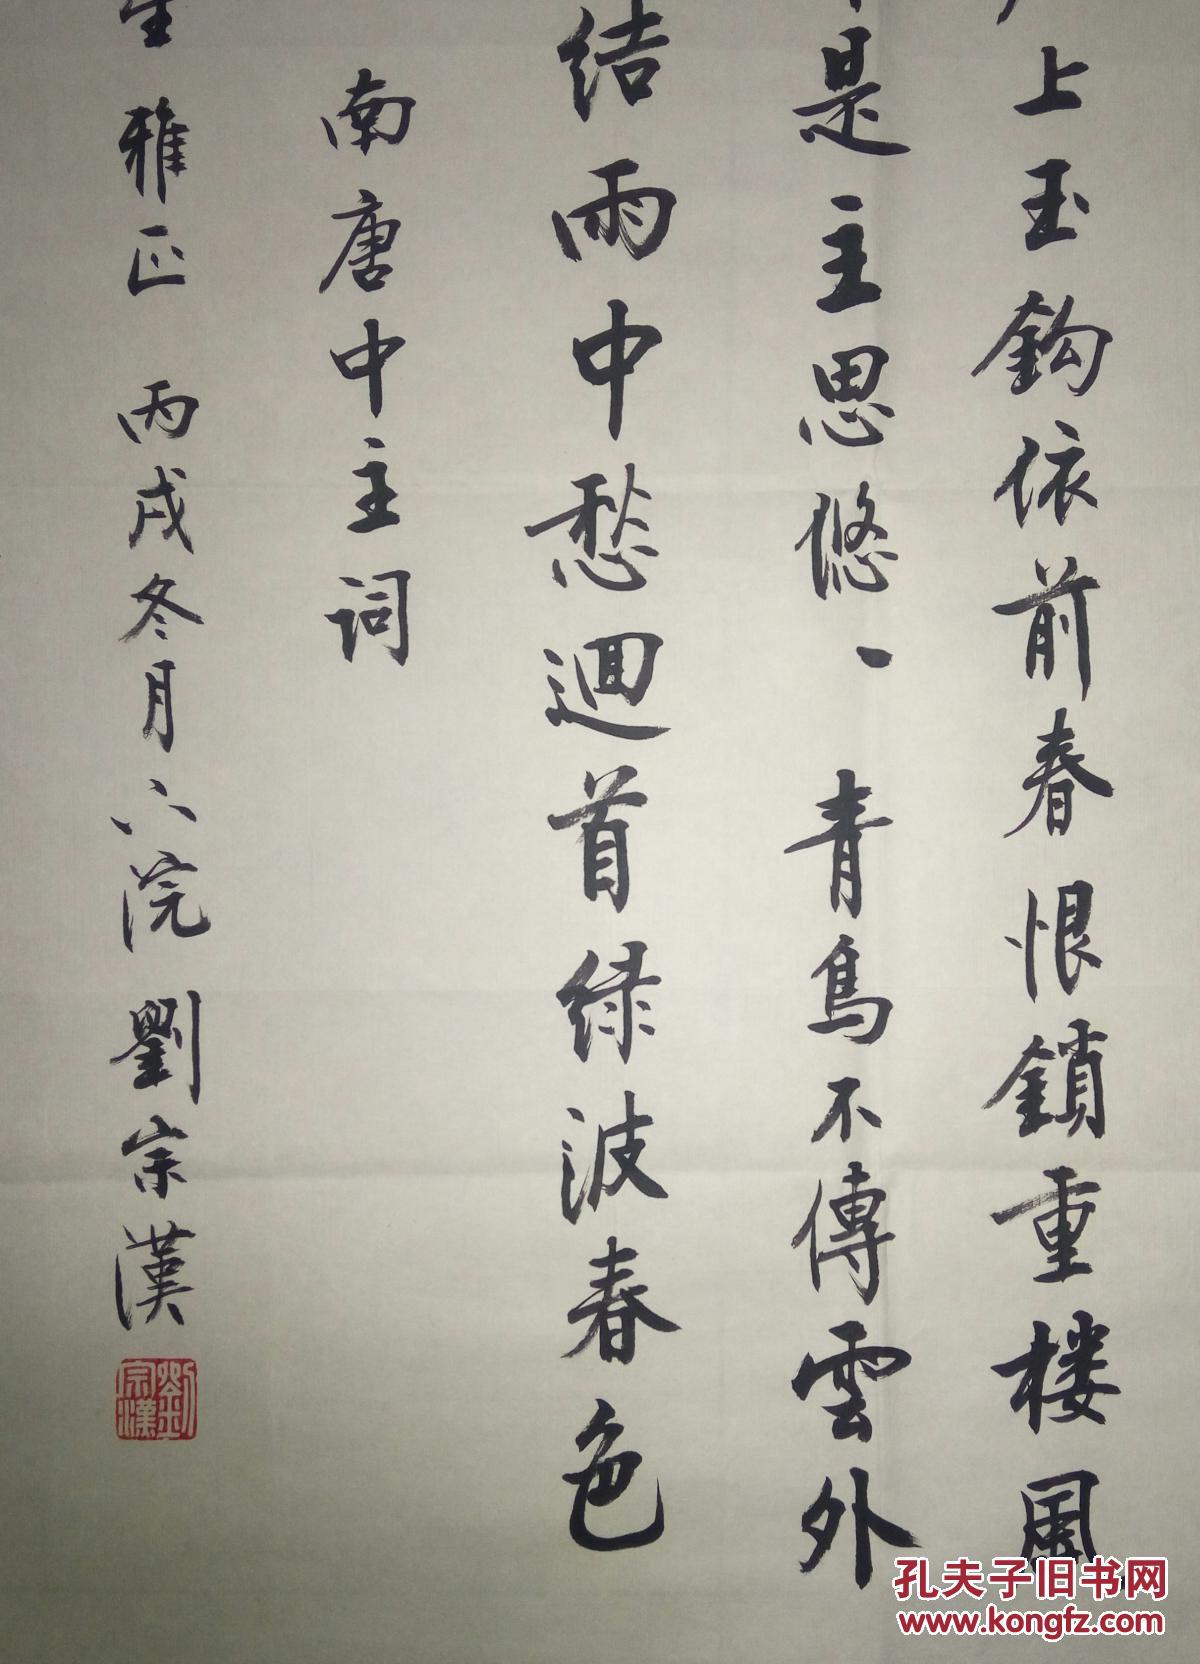 上玉鈎依前春恨鎖重楼風
是主思悠丶青鳥不傳雲外
结雨中愁迴首绿波春色
南唐中主词
雅正 丙戌冬月六院劉宗漢
劉宗漢
孔夫子旧书网
www.kongfz.com